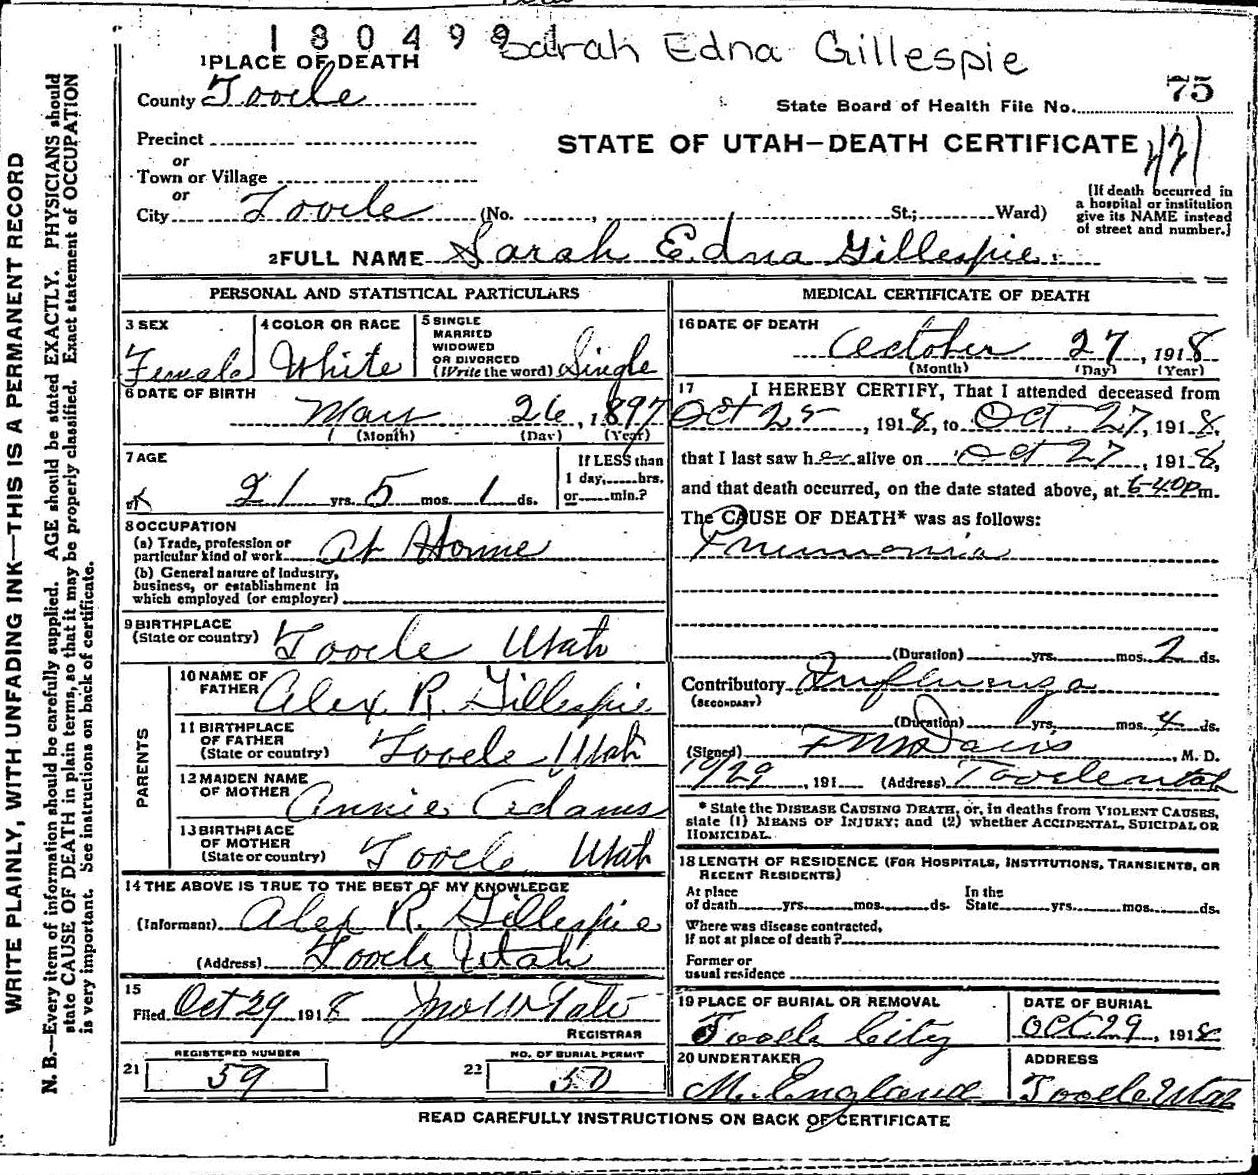 1 8 0 4 9 9 1 Sarah Edna Gillespie
1 PLACE OF DEATH
County Tooele
State Board of Health File No. 75
Precinct
or
Town or Village
or
City Tooele (No. , St.; Ward)
STATE OF UTAH—DEATH CERTIFICATE
[If death occurred in
a hospital or institution
give its NAME instead
of street and number.]
2 FULL NAME Sarah Edna Gillespie
PERSONAL AND STATISTICAL PARTICULARS
3 SEX
Female
4 COLOR OR RACE
White
5 SINGLE
MARRIED
WIDOWED
OR DIVORCED
(Write the word) Single
6 DATE OF BIRTH
May 26, 1897
(Month) (Day) (Year)
7 AGE
21 yrs. 5 mos. 1 ds.
If LESS than
1 day, hrs.
or min.?
8 OCCUPATION
(a) Trade, profession or
particular kind of work At Home
(b) General nature of Industry,
business, or establishment in
which employed (or employer)
9 BIRTHPLACE
(State or country) Tooele Utah
PARENTS
10 NAME OF
FATHER Alex R. Gillespie
11 BIRTHPLACE
OF FATHER
(State or country) Tooele Utah
12 MAIDEN NAME
OF MOTHER Annie Adams
13 BIRTHPLACE
OF MOTHER
(State or country) Tooele Utah
14 THE ABOVE IS TRUE TO THE BEST OF MY KNOWLEDGE
(Informant) Alex R. Gillespie
(Address) Tooele Utah
15
Filed Oct 29 1918 Jno W Tate
REGISTRAR
REGISTERED NUMBER
21 59
NO. OF BURIAL PERMIT
22 50
MEDICAL CERTIFICATE OF DEATH
16 DATE OF DEATH
October 27, 1918
(Month) (Day) (Year)
17 I HEREBY CERTIFY, That I attended deceased from
Oct 25, 1918, to Oct. 27, 1918,
that I last saw her alive on Oct 27, 1918,
and that death occurred, on the date stated above, at 6-40 p m.
The CAUSE OF DEATH* was as follows:
Pneumonia
(Duration) yrs. mos. 2 ds.
Contributory Influenza
(SECONDARY)
(Duration) yrs. mos. 4 ds.
(Signed) Davis, M. D.
10/29, 191 (Address) Tooele Utah
* State the DISEASE CAUSING DEATH, or, in deaths from VIOLENT CAUSES,
state (1) MEANS OF INJURY; and (2) whether ACCIDENTAL, SUICIDAL OR
HOMICIDAL.
18 LENGTH OF RESIDENCE (FOR HOSPITALS, INSTITUTIONS, TRANSIENTS, OR
RECENT RESIDENTS)
At place
of death yrs. mos. ds.
In the
State yrs. mos. ds.
Where was disease contracted,
If not at place of death?
Former or
usual residence
19 PLACE OF BURIAL OR REMOVAL
Tooele City
DATE OF BURIAL
Oct. 29, 1918
20 UNDERTAKER
M. England
ADDRESS
Tooele Utah
READ CAREFULLY INSTRUCTIONS ON BACK OF CERTIFICATE
WRITE PLAINLY, WITH UNFADING INK—THIS IS A PERMANENT RECORD
N. B.—Every item of information should be carefully supplied. AGE should be stated EXACTLY. PHYSICIANS should
state CAUSE OF DEATH in plain terms, so that it may be properly classified. Exact statement of OCCUPATION
is very important. See instructions on back of certificate.